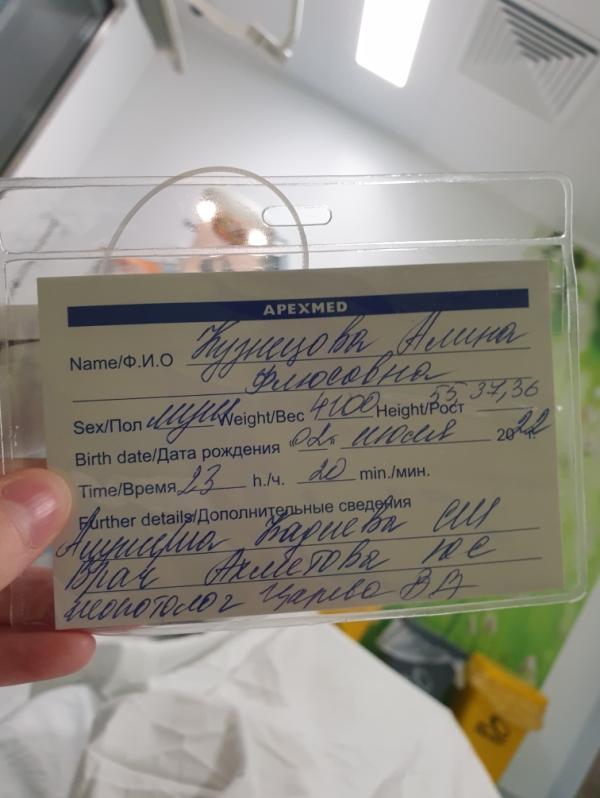 APEXMED
Name/Ф.И.О Кузнецова Алина
Флюсовна
Sex/Пол муж Weight/Вес 4100 Height/Рост 55 37,36
Birth date/Дата рождения 02 июля 2022 г.
Time/Время 23 h./ч. 20 min./мин.
Further details/Дополнительные сведения
Акушерка Кадиева СШ
Врач Ахметова ЮЕ
неонотолог Царева ВД